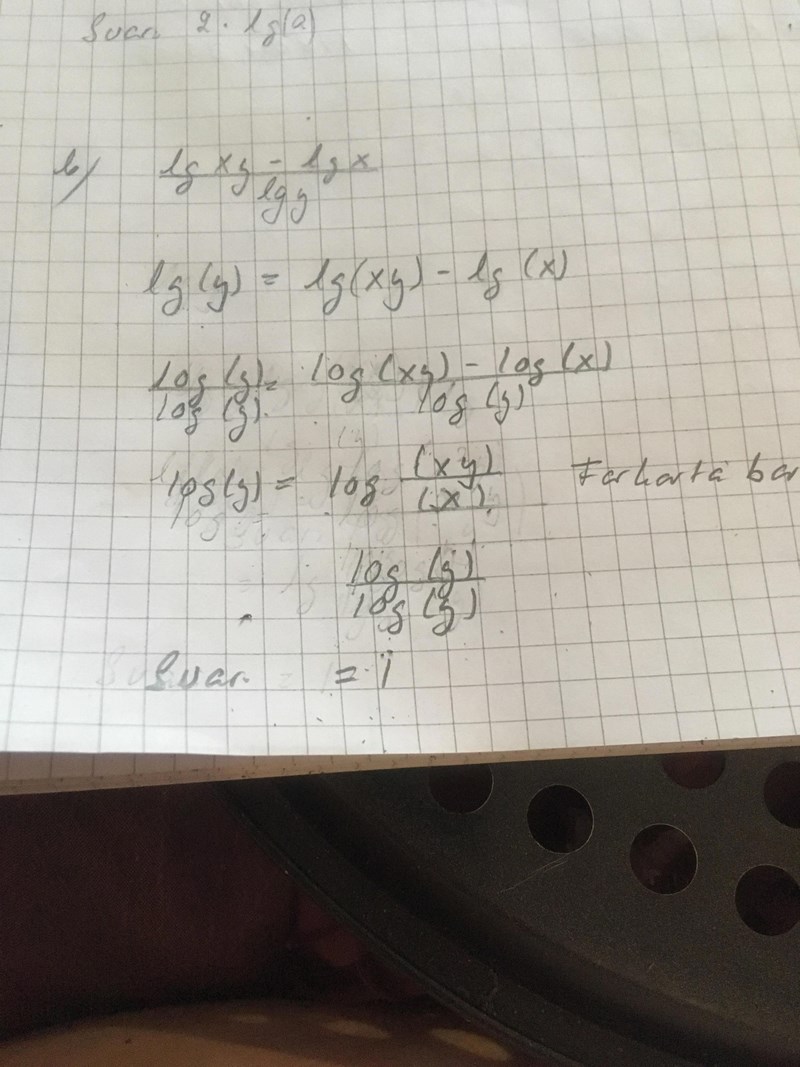 Svar. 2 · lg(a)
b) (lg xy - lg x)/(lg y)
lg(y) = lg(xy) - lg(x)
log(y)/log(y) = (log(xy) - log(x))/log(y)
log(y) = log (xy)/(x)
log(y)/log(y)
Svar. = 1